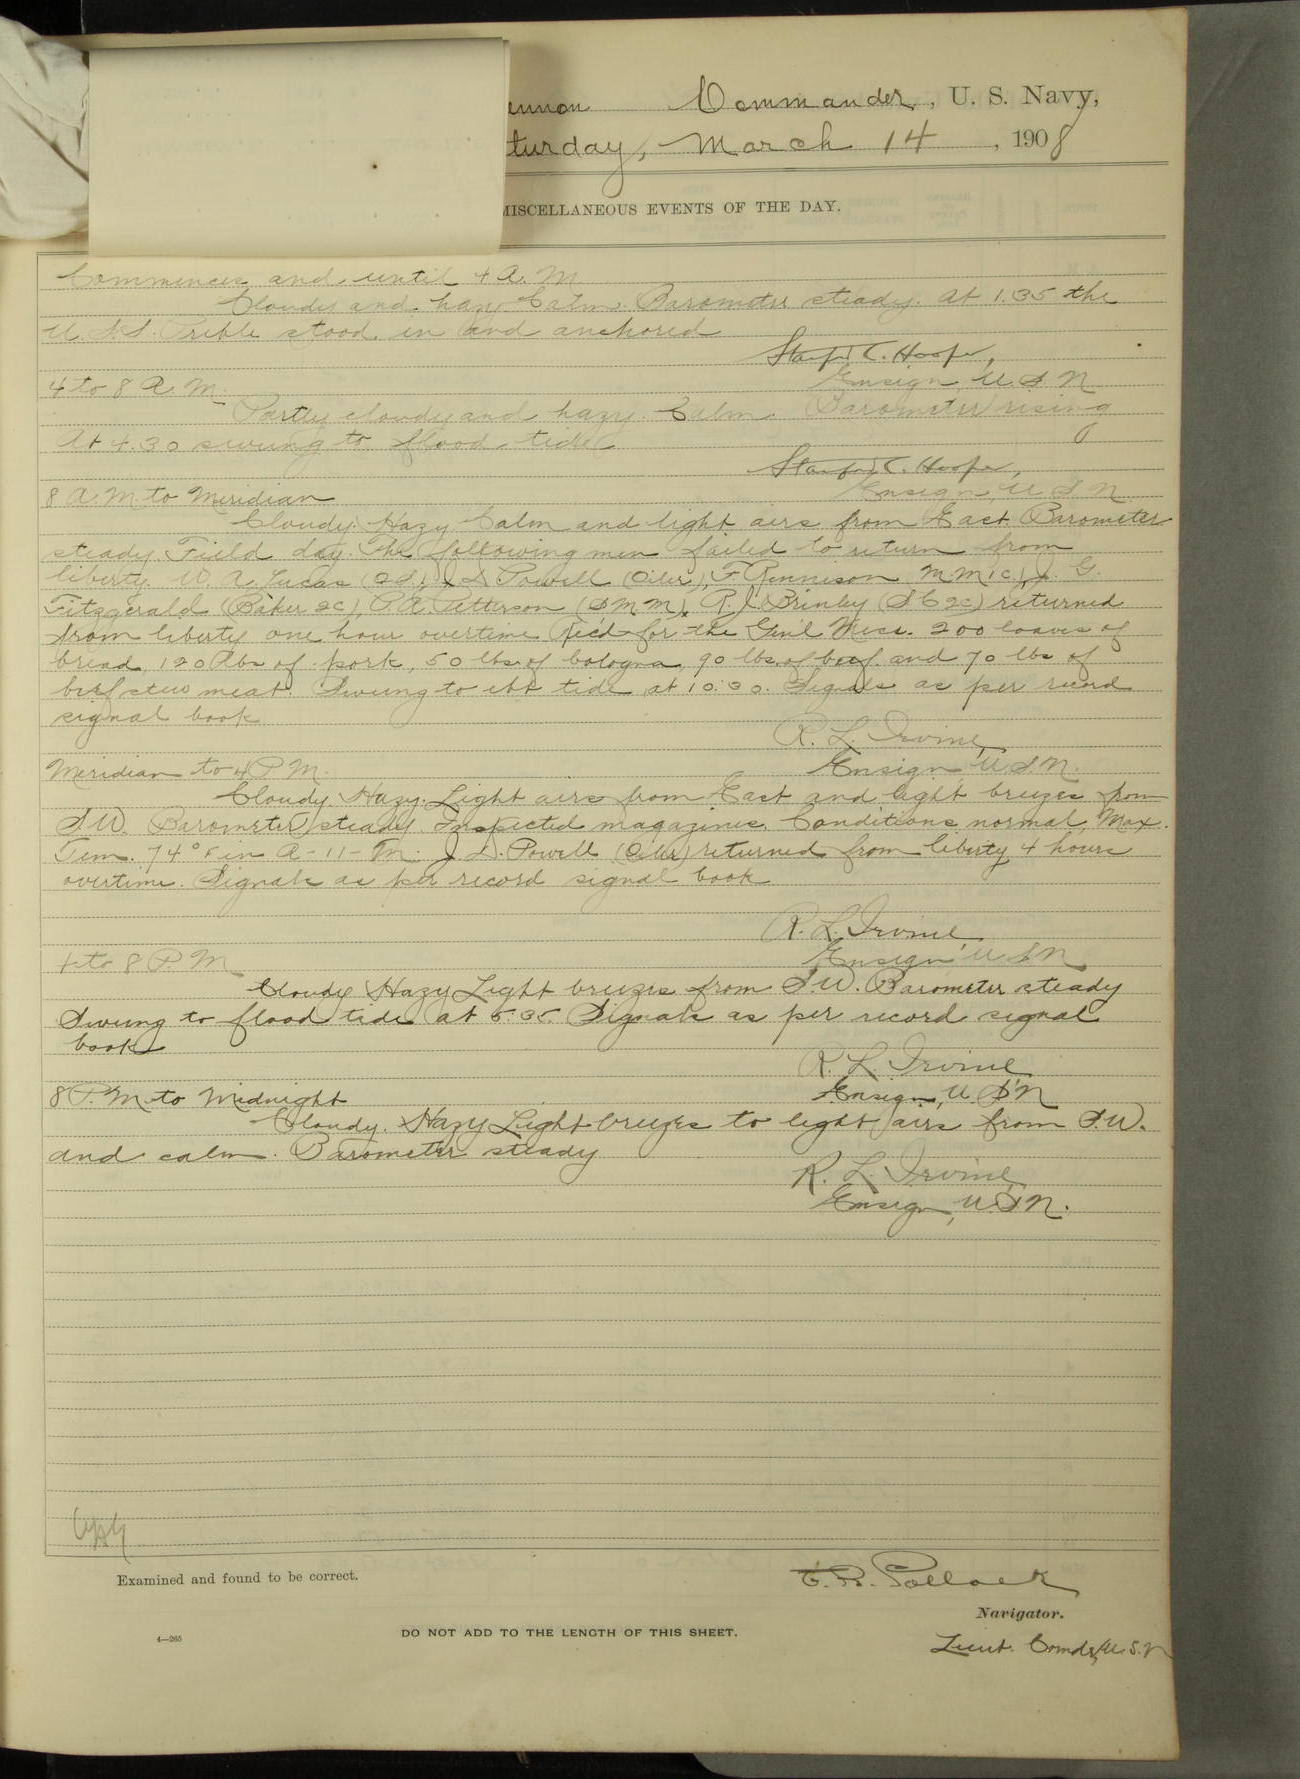 ennon Commander, U. S. Navy,
turday, March 14, 1908
MISCELLANEOUS EVENTS OF THE DAY.
Commences and until 4 A. M.
Cloudy and hazy. Calm. Barometer steady. At 1.35 the
U.S.S. Preble stood in and anchored
Stanford C. Hooper,
Ensign, U.S.N
4 to 8 A. M.
Partly cloudy and hazy. Calm. Barometer rising
At 4.30 swung to flood tide
Stanford C. Hooper,
Ensign, U S N
8 A. M. to Meridian
Cloudy. Hazy. Calm and light airs from East. Barometer
steady. Field day. The following men failed to return from
liberty. W. A. Lucas (O.S.), J. D. Powell (Oiler), F. Rennison M M 1c), J. G.
Fitzgerald (Baker 2c), P. A. Petterson (S M M), R. J. Brinley (S C 2c) returned
from liberty one hour overtime. Rec'd for the Gen'l Mess. 200 loaves of
bread, 120 lbs of pork, 50 lbs of bologna, 90 lbs. of beef and 70 lbs of
beef stew meat. Swung to ebb tide at 10:30. Signals as per record
signal book
R. L. Irvine
Ensign, U.S.N.
Meridian to 4 P. M.
Cloudy. Hazy. Light airs from East and light breezes from
S.W. Barometer steady. Inspected magazines. Conditions normal. Max.
Tem. 74° F in A-11-M. J. D. Powell (Oiler) returned from liberty 4 hours
overtime. Signals as per record signal book
R. L. Irvine
Ensign, U S N
4 to 8 P. M.
Cloudy Hazy Light breezes from S.W. Barometer steady
Swung to flood tide at 5:35. Signals as per record signal
book
R. L. Irvine
Ensign, U S N
8 P. M. to Midnight
Cloudy. Hazy Light breezes to light airs from S.W.
and calm. Barometer steady
R. L. Irvine
Ensign, U.S.N.
Examined and found to be correct.
E. R. Pollock
Navigator.
4—265
DO NOT ADD TO THE LENGTH OF THIS SHEET.
Lieut. Comdr, U.S.N